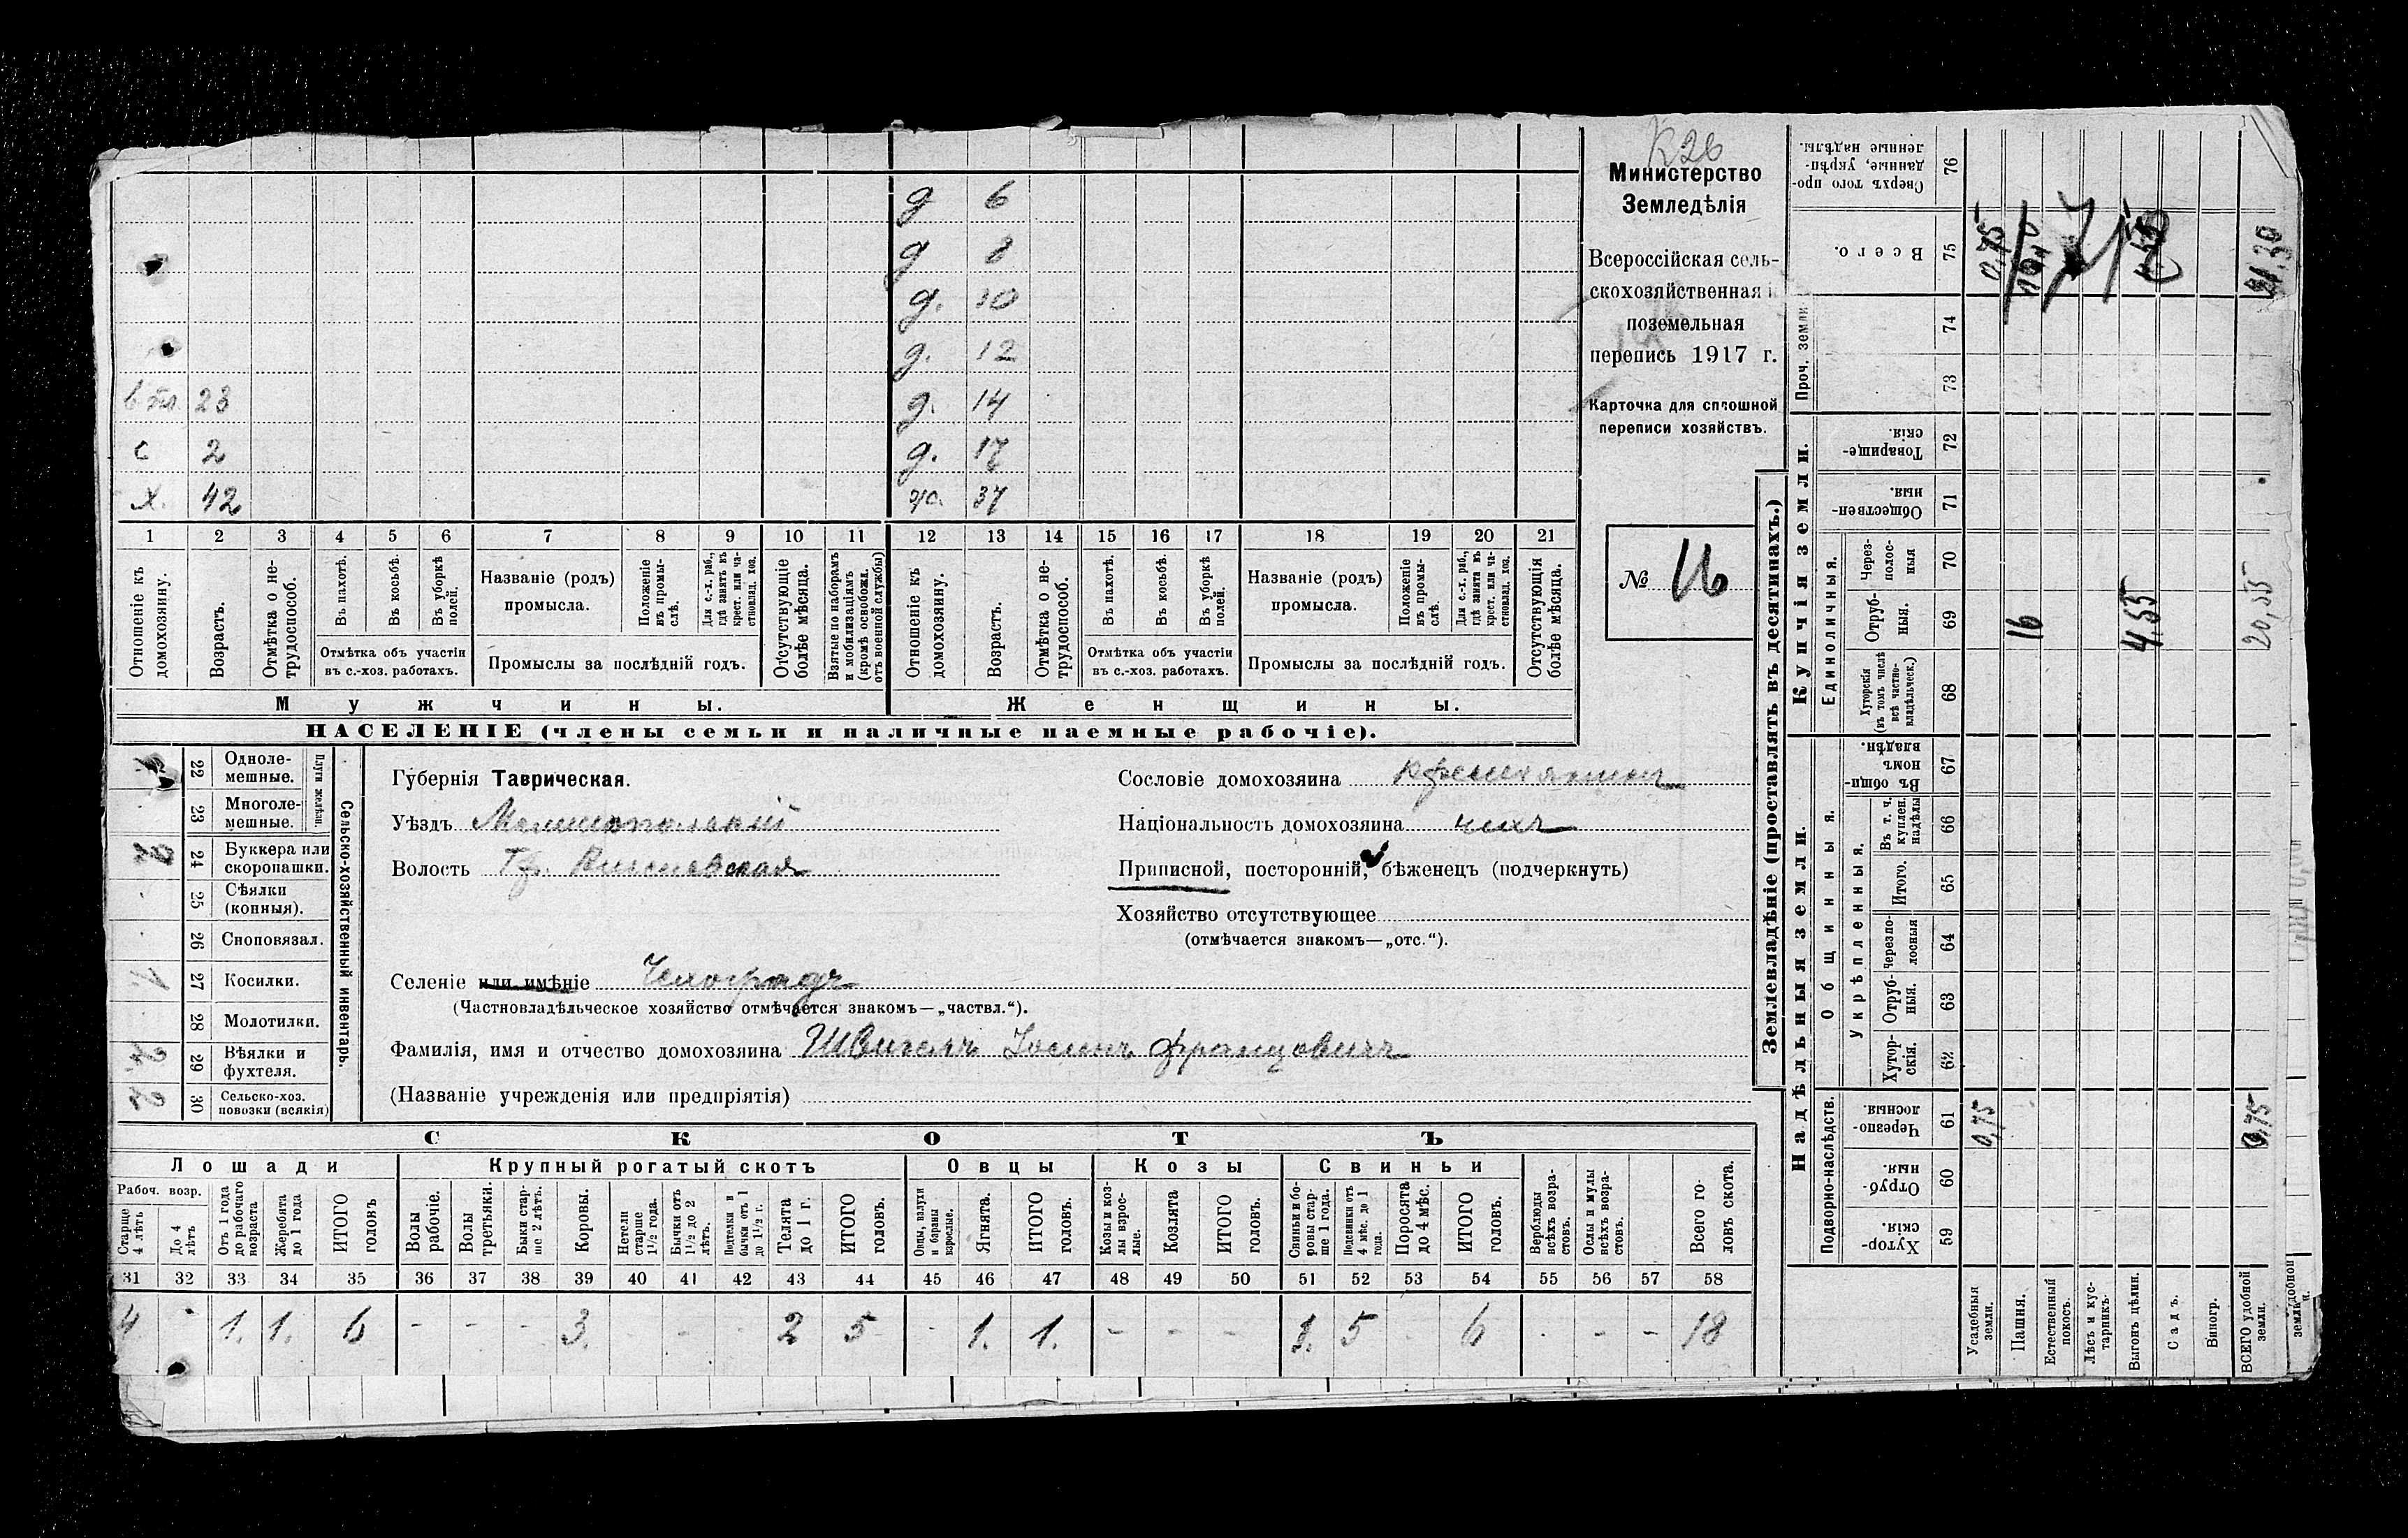 К26
Министерство
Земледѣлія
Всероссійская сель-
скохозяйственная и
поземельная
перепись 1917 г.
Карточка для сплошной
переписи хозяйствъ.
№ 16
д 6
д 8
д. 10
д. 12
23 д. 14
с 2 д. 17
х. 42 ж. 37
1 2 3 4 5 6 7 8 9 10 11 12 13 14 15 16 17 18 19 20 21
Отношеніе къ домохозяину.
Возрастъ.
Отмѣтка о не-трудоспособ.
Въ пахотѣ.
Въ косьбѣ.
Въ уборкѣ полей.
Отмѣтка объ участіи
въ с.-хоз. работахъ.
Названіе (родъ)
промысла.
Положеніе въ промы-слѣ.
Для с.-х. раб., гдѣ занятъ въ крест. или ча-стновлад. хоз.
Промыслы за послѣдній годъ.
Отсутствующіе болѣе мѣсяца.
Взятые по наборамъ и мобилизаціямъ (кромѣ освобожд. отъ военной службы)
Отношеніе къ домохозяину.
Возрастъ.
Отмѣтка о не-трудоспособ.
Въ пахотѣ.
Въ косьбѣ.
Въ уборкѣ полей.
Отмѣтка объ участіи
въ с.-хоз. работахъ.
Названіе (родъ)
промысла.
Положеніе въ промы-слѣ.
Для с.-х. раб., гдѣ занята въ крест. или ча-стновлад. хоз.
Промыслы за послѣдній годъ.
Отсутствующія болѣе мѣсяца.
Мужчины. Женщины.
НАСЕЛЕНІЕ (члены семьи и наличные наемные рабочіе).
Сельско-хозяйственный инвентарь.
Плуги желѣзн.
22 Одноле-мешные.
23 Многоле-мешные.
24 Буккера или скоропашки.
25 Сѣялки (конныя).
26 Сноповязал.
1 27 Косилки.
28 Молотилки.
29 Вѣялки и фухтеля.
2 30 Сельско-хоз. повозки (всякія)
Губернія Таврическая.
Уѣздъ Мелитопольскій
Волость
Сословіе домохозяина крестьянинъ
Національность домохозяина чехъ
Приписной, посторонній, бѣженецъ (подчеркнуть)
Хозяйство отсутствующее
(отмѣчается знакомъ—„отс.“).
Селеніе или имѣніе Чехоградъ
(Частновладѣльческое хозяйство отмѣчается знакомъ—„частвл.“).
Фамилія, имя и отчество домохозяина Швигель Іосифъ Францовичъ
(Названіе учрежденія или предпріятія)
СКОТЪ
Лошади Крупный рогатый скотъ Овцы Козы Свиньи
Рабоч. возр.
Старше 4 лѣтъ
До 4 лѣтъ
Отъ 1 года до рабочаго возраста
Жеребята до 1 года
ИТОГО головъ
Волы рабочіе.
Волы третьяки.
Быки стар-ше 2 лѣтъ.
Коровы.
Нетели старше 1½ года.
Бычки отъ 1½ до 2 лѣтъ.
Подтелки и бычки отъ 1 до 1½ г.
Телята до 1 г.
ИТОГО головъ.
Овцы, валухи и бараны взрослые.
Ягнята.
ИТОГО головъ.
Козы и коз-лы взрос-лые.
Козлята
ИТОГО головъ.
Свиньи и бо-ровы стар-ше 1 года.
Подсвинки отъ 4 мѣс. до 1 года.
Поросята до 4 мѣс.
ИТОГО головъ.
Верблюды всѣхъ возра-стовъ.
Ослы и мулы всѣхъ возра-стовъ.
Всего го-ловъ скота.
31 32 33 34 35 36 37 38 39 40 41 42 43 44 45 46 47 48 49 50 51 52 53 54 55 56 57 58
4 - 1. 1. 6 - - - 3. - - 2 5 - 1. 1. - - - 1. 5 6 - - - 18
Землевладѣніе (проставлять въ десятинахъ.)
Надѣльныя земли. Купчія земли. Проч. земли
Подворно-наслѣдств. Общинныя. Укрѣпленныя. Единоличныя.
59 Хутор-скія.
60 Отруб-ныя.
61 Черезпо-лосныя
62 Хутор-скія.
63 Отруб-ныя.
64 Черезпо-лосныя
65 Итого.
66 Въ т. ч. куплен. надѣлы
67 Въ общи-номъ владѣн.
68 Хуторскія (въ томъ числѣ всѣ частно-владѣльческ.)
69 Отруб-ныя.
70 Через-полос-ныя
71 Обществен-ныя.
72 Товарище-скія.
73
74
75 Всего.
76 Сверхъ того про-данные, укрѣп-ленные надѣлы.
Усадебныя земли. 0,75 0,75
Пашня. 16
Естественный покосъ.
Лѣсъ и кус-тарникъ.
Выгонъ цѣлин. 4,55
Садъ.
Виногр.
ВСЕГО удобной земли. 0,75 20,55 21,30